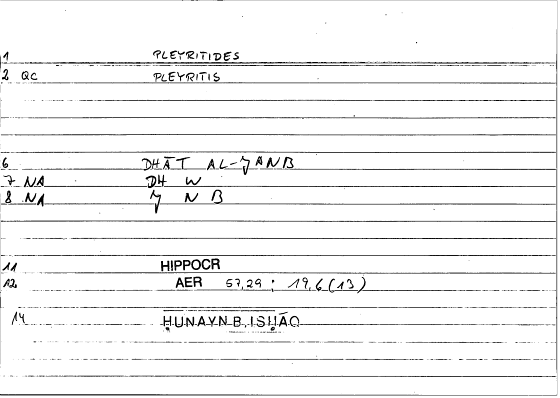 1 PLEYRITIDES
2 QC PLEYRITIS
6 DHĀT AL-ǦANB
7 NA DH W
8 NA Ǧ N B
11 HIPPOCR
12 AER 57,29 ; 19,6 (13)
14 ḤUNAYN B. ISḤĀQ